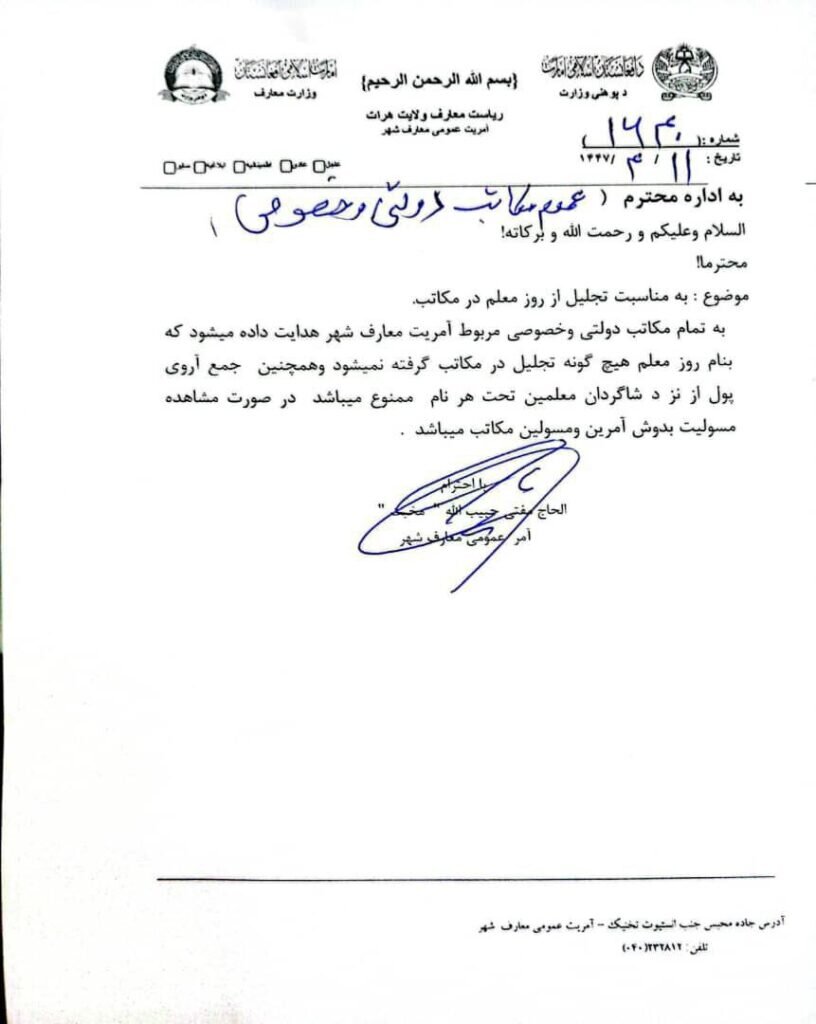 د افغانستان اسلامی امارت
د پوهنی وزارت
{بسم الله الرحمن الرحیم}
امارت اسلامی افغانستان
وزارت معارف
ریاست معارف ولایت هرات
آمریت عمومی معارف شهر
شماره :( ۱۶۳۰ )
تاریخ : ۱۱ / ۳ /۱۴۴۷
عادی اطمینانیه ابلاغیه
به اداره محترم ( عموم مکاتب دولتی و خصوصی )
السلام وعلیکم و رحمت الله و برکاته!
محترما!
موضوع : به مناسبت تجلیل از روز معلم در مکاتب.
به تمام مکاتب دولتی وخصوصی مربوط آمریت معارف شهر هدایت داده میشود که
بنام روز معلم هیچ گونه تجلیل در مکاتب گرفته نمیشود وهمچنین جمع آروی
پول از نز د شاگردان معلمین تحت هر نام ممنوع میباشد در صورت مشاهده
مسولیت بدوش آمرین ومسولین مکاتب میباشد .
با احترام
الحاج مفتی حبیب الله
آمر عمومی معارف شهر
آدرس جاده محبس جنب انستیوت تخنیک – آمریت عمومی معارف شهر
تلفن: ۲۳۲۸۱۲(۰۴۰)